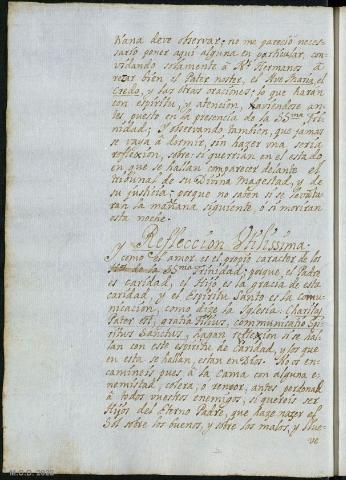 tiana deve observar; no me pareció neces-
sario poner aqui alguna en particular, con-
vidando solamente à Nros Hermanos à
rezar bien el Pater noster, el Ave Maria, el
Credo, y las otras oraciones; lo que haran
con espiritu, y atencion, haviendose an-
tes puesto en la presencia de la SSma Tri-
nidad; y observando tambien, que jamas
se vaya à dormir, sin hazer una seria
reflexion, sobre: si querrian en el estado
en que se hallan comparecer delante el
tribunal de su Divina Magestad, y de
su justicia; porque no saben si se levanta-
ran la mañana siguiente, o si moriran
esta noche.
Refleccion Utilissima.
Y como el amor es el propio caracter de los
de la SSma Trinidad; porque, el Padre
es caridad, el Hijo es la gracia de esta
caridad, y el Espiritu Santo es la comu-
nicacion, como dize la Iglesia: Charitas
Pater est, gratia Filius, communicatio Spi-
ritus Sanctus; hagan reflexion si se hal-
lan con este espiritu de Caridad, y los que
en esta se hallan, estan en Dios. No os en-
camineis pues à la cama con alguna e-
nemistad, colera, o rencor, antes perdonad
à todos vuestros enemigos, si quereis ser
Hijos del Eterno Padre, que haze nazer el
Sol sobre los buenos, y sobre los malos, y llue-
ve